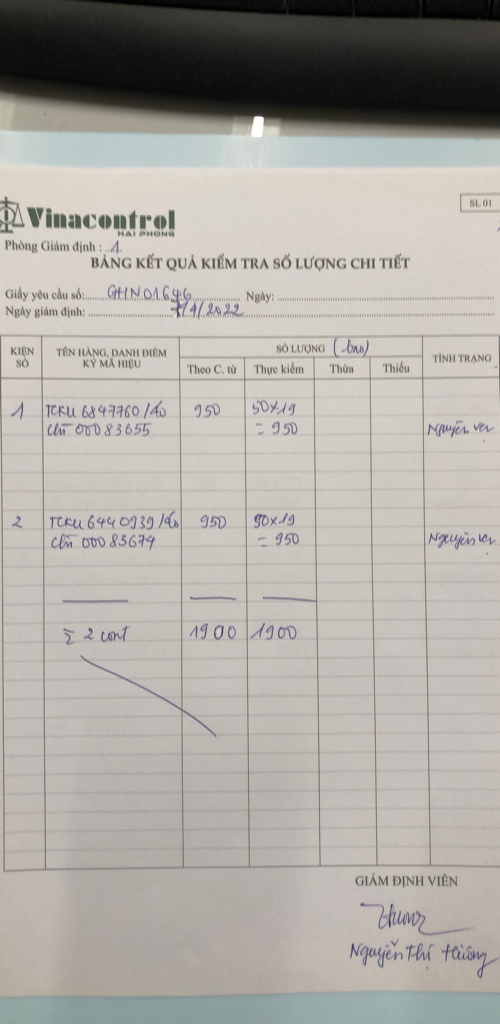 SL 01
Vinacontrol
HAI PHONG
Phòng Giám định : 1
BẢNG KẾT QUẢ KIỂM TRA SỐ LƯỢNG CHI TIẾT
Giấy yêu cầu số: GHN01646 Ngày:
Ngày giám định: 7/4/2022
KIỆN SỐ TÊN HÀNG, DANH ĐIỂM KÝ MÃ HIỆU SỐ LƯỢNG (bao) TÌNH TRẠNG
Theo C. từ Thực kiểm Thừa Thiếu
1 TCKU 6847760 /40 950 50x19
chì 0083655 = 950 Nguyên vẹn
2 TCKU 6440939 /40 950 50x19
chì 0083679 = 950 Nguyên vẹn
Σ 2 cont 1900 1900
GIÁM ĐỊNH VIÊN
Nguyễn Thị Hương